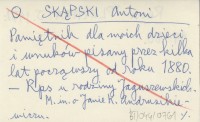 O SKĄPSKI Antoni
Pamiętnik dla moich dzieci
i wnuków pisany przez kilka
lat począwszy od roku 1880.
– Rps u rodziny Jaguszewskich.
M. in. o Janie K. Andrusikie-
wiczu.